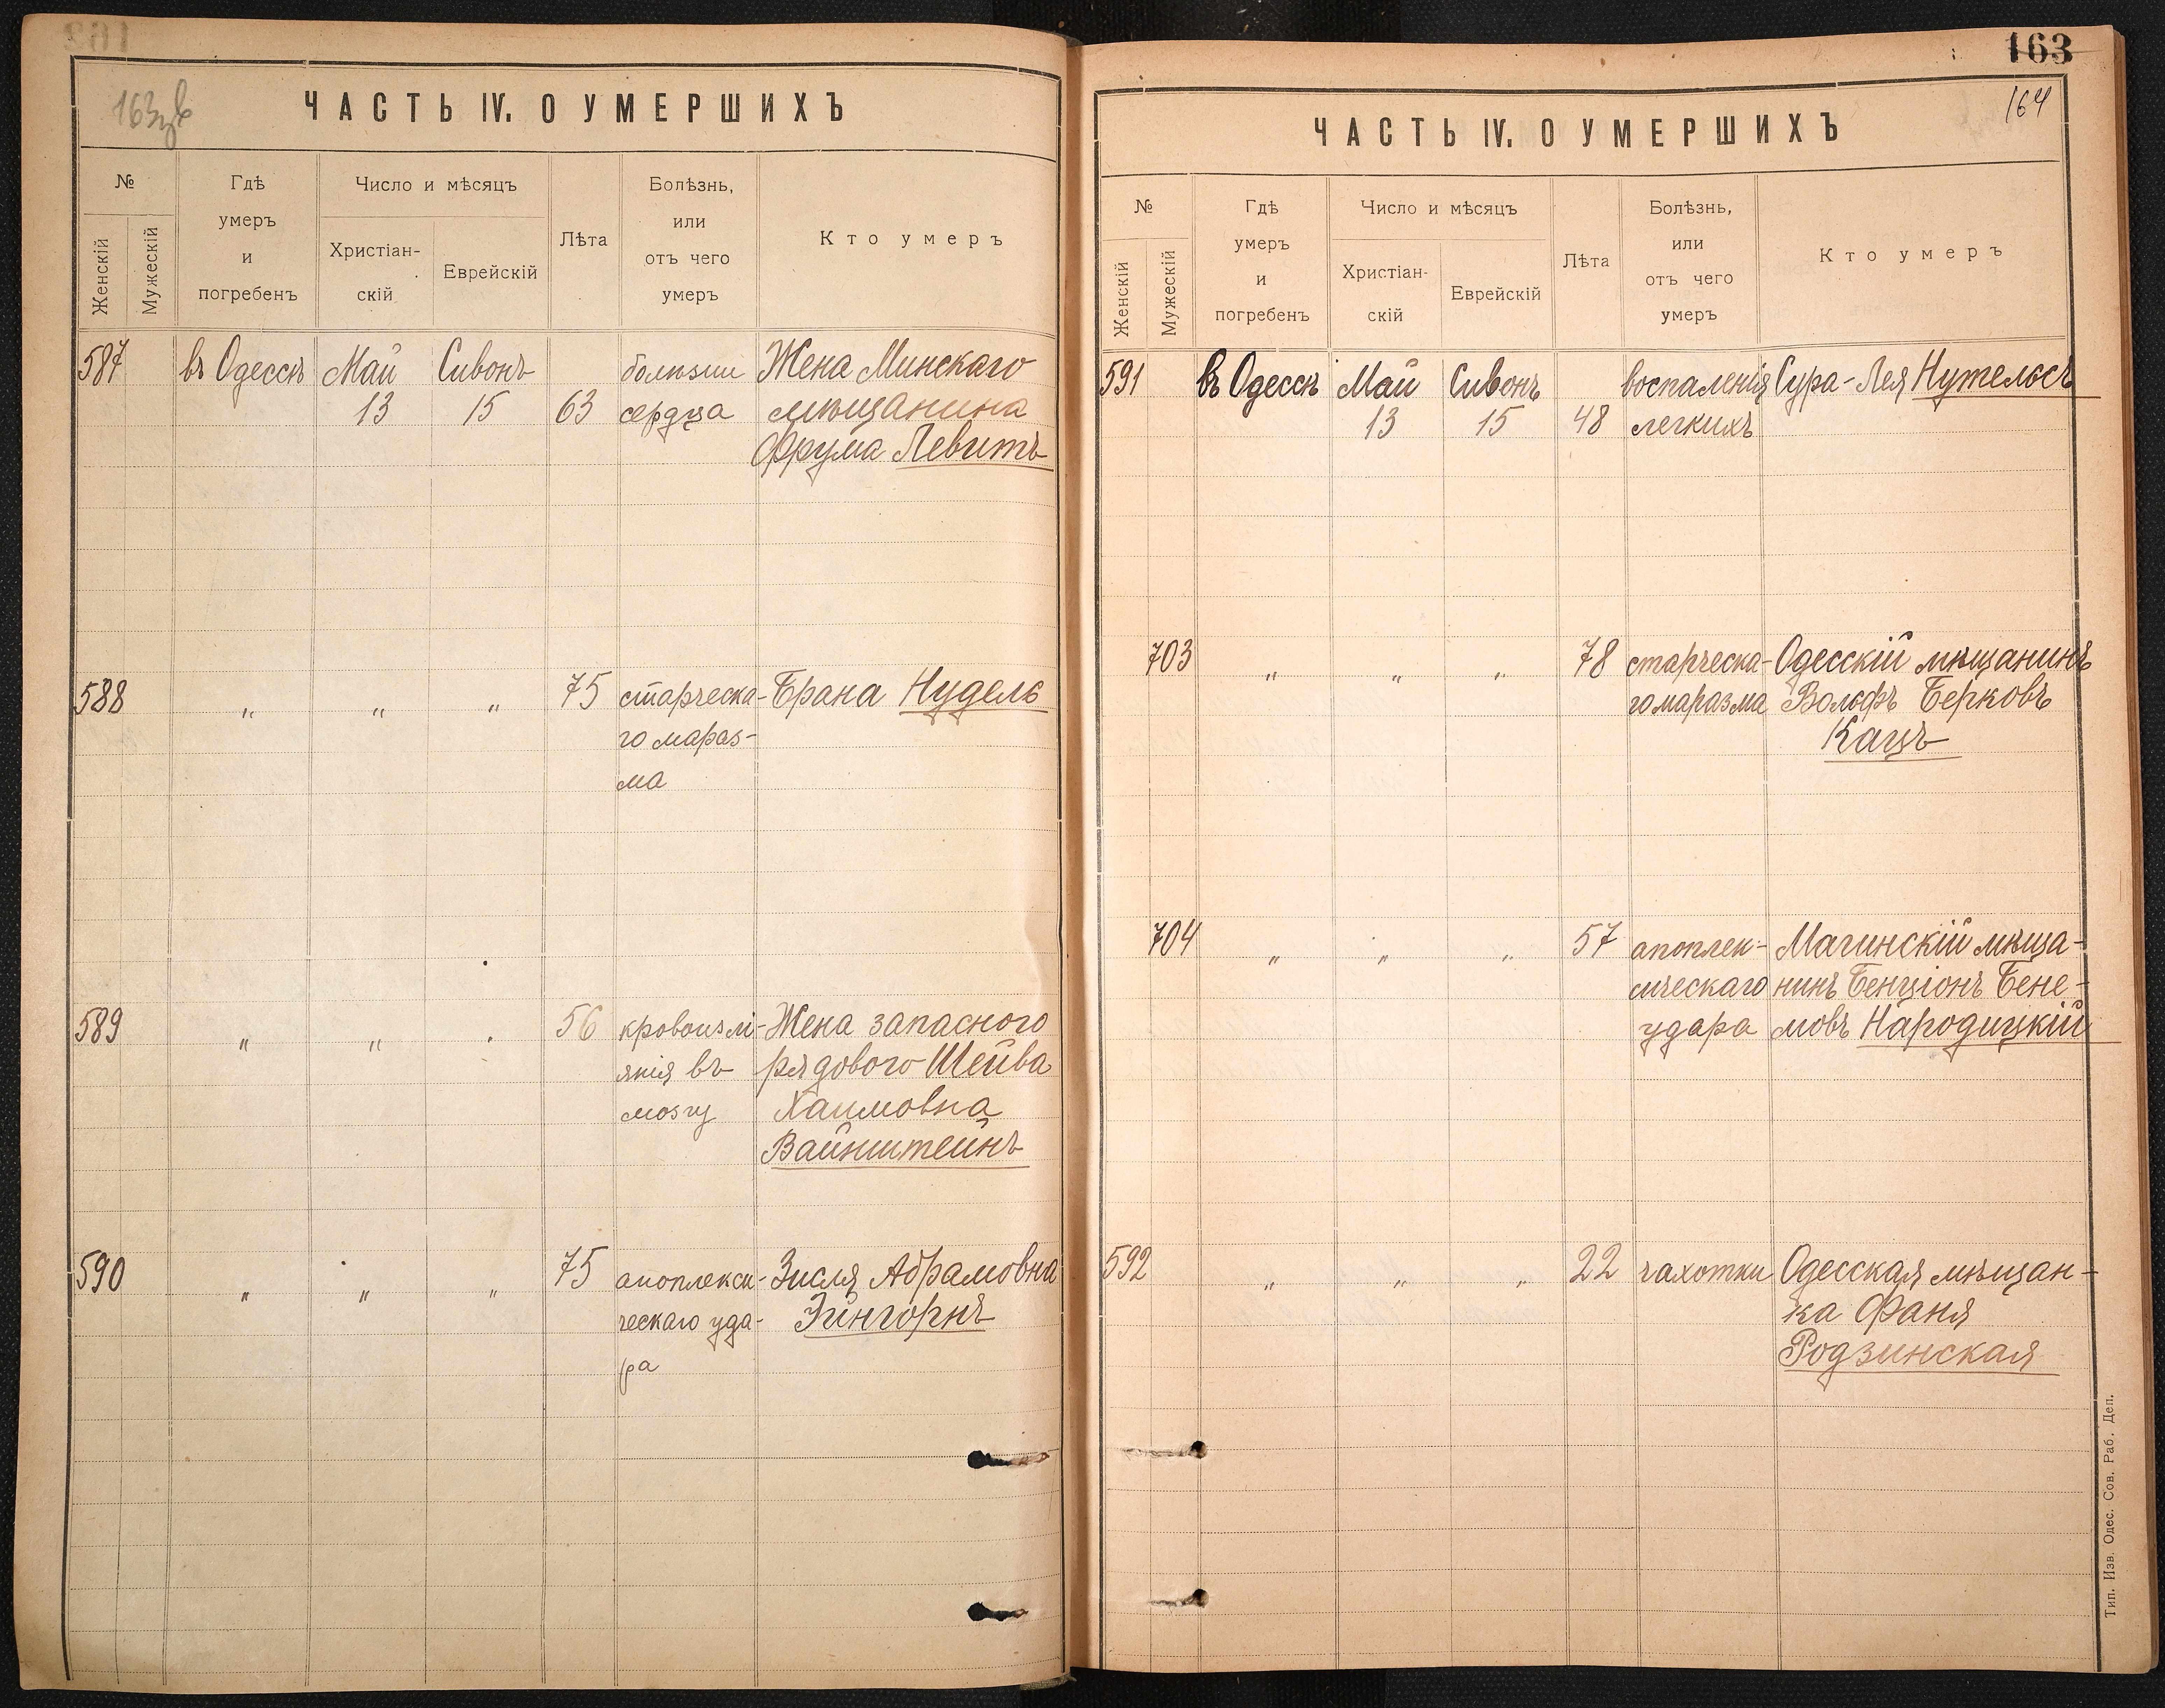 163
ЧАСТЬ IV. О УМЕРШИХЪ
№
Женскій
Мужескій
Гдѣ
умеръ
и
погребенъ
Число и мѣсяцъ
Христіан-
скій
Еврейскій
Лѣта
Болѣзнь,
или
отъ чего
умеръ
Кто умеръ
587 въ Одессѣ Май Сивонъ болѣзни Жена Минскаго
13 15 63 сердца мѣщанина
Фрума Левитъ
588 " " " 75 старческа- Брана Нудель
го мараз-
ма
589 " " " 56 кровоизлі- Жена запасного
янія въ рядового Шейва
мозгу Хаимовна
Вайнштейнъ
590 " " " 75 апоплекси- Зисля Абрамовна
ческаго уда- Эйнгорнъ
ра
163
164
ЧАСТЬ IV. О УМЕРШИХЪ
№
Женскій
Мужескій
Гдѣ
умеръ
и
погребенъ
Число и мѣсяцъ
Христіан-
скій
Еврейскій
Лѣта
Болѣзнь,
или
отъ чего
умеръ
Кто умеръ
591 въ Одессѣ Май Сивонъ воспаленія Сура-Лея Нутельсъ
13 15 48 легкихъ
703 " " " 78 старческа- Одесскій мѣщанинъ
го маразма Вольфъ Берковъ
Кацъ
704 " " " 57 апоплек- Мачинскій мѣща-
сическаго нинъ Бенціонъ Бене-
удара мовъ Народицкій
592 " " " 22 чахотки Одесская мѣщан-
ка Фаня
Родзинская
Тип. Изв. Одес. Сов. Раб. Деп.